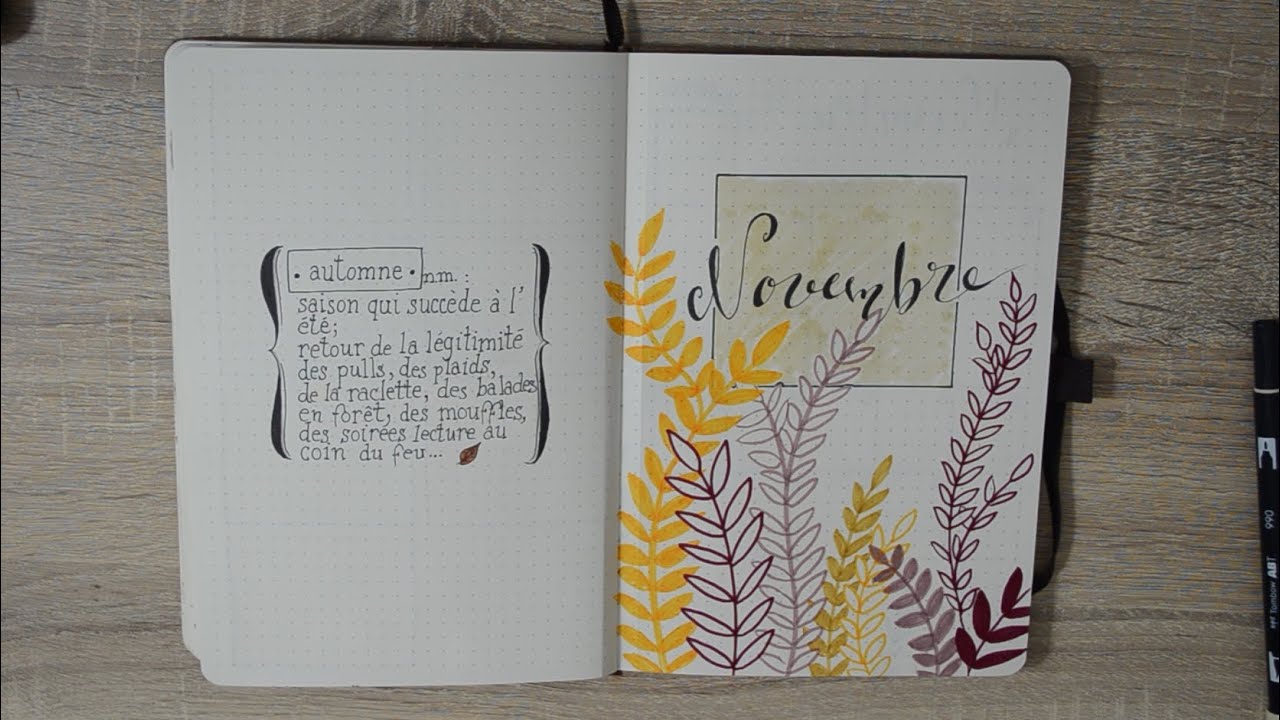 • automne • n.m. :
saison qui succède à l'
été;
retour de la légitimité
des pulls, des plaids,
de la raclette, des balades
en forêt, des mouffles,
des soirées lecture au
coin du feu...
Novembre
990
Tombow ABT